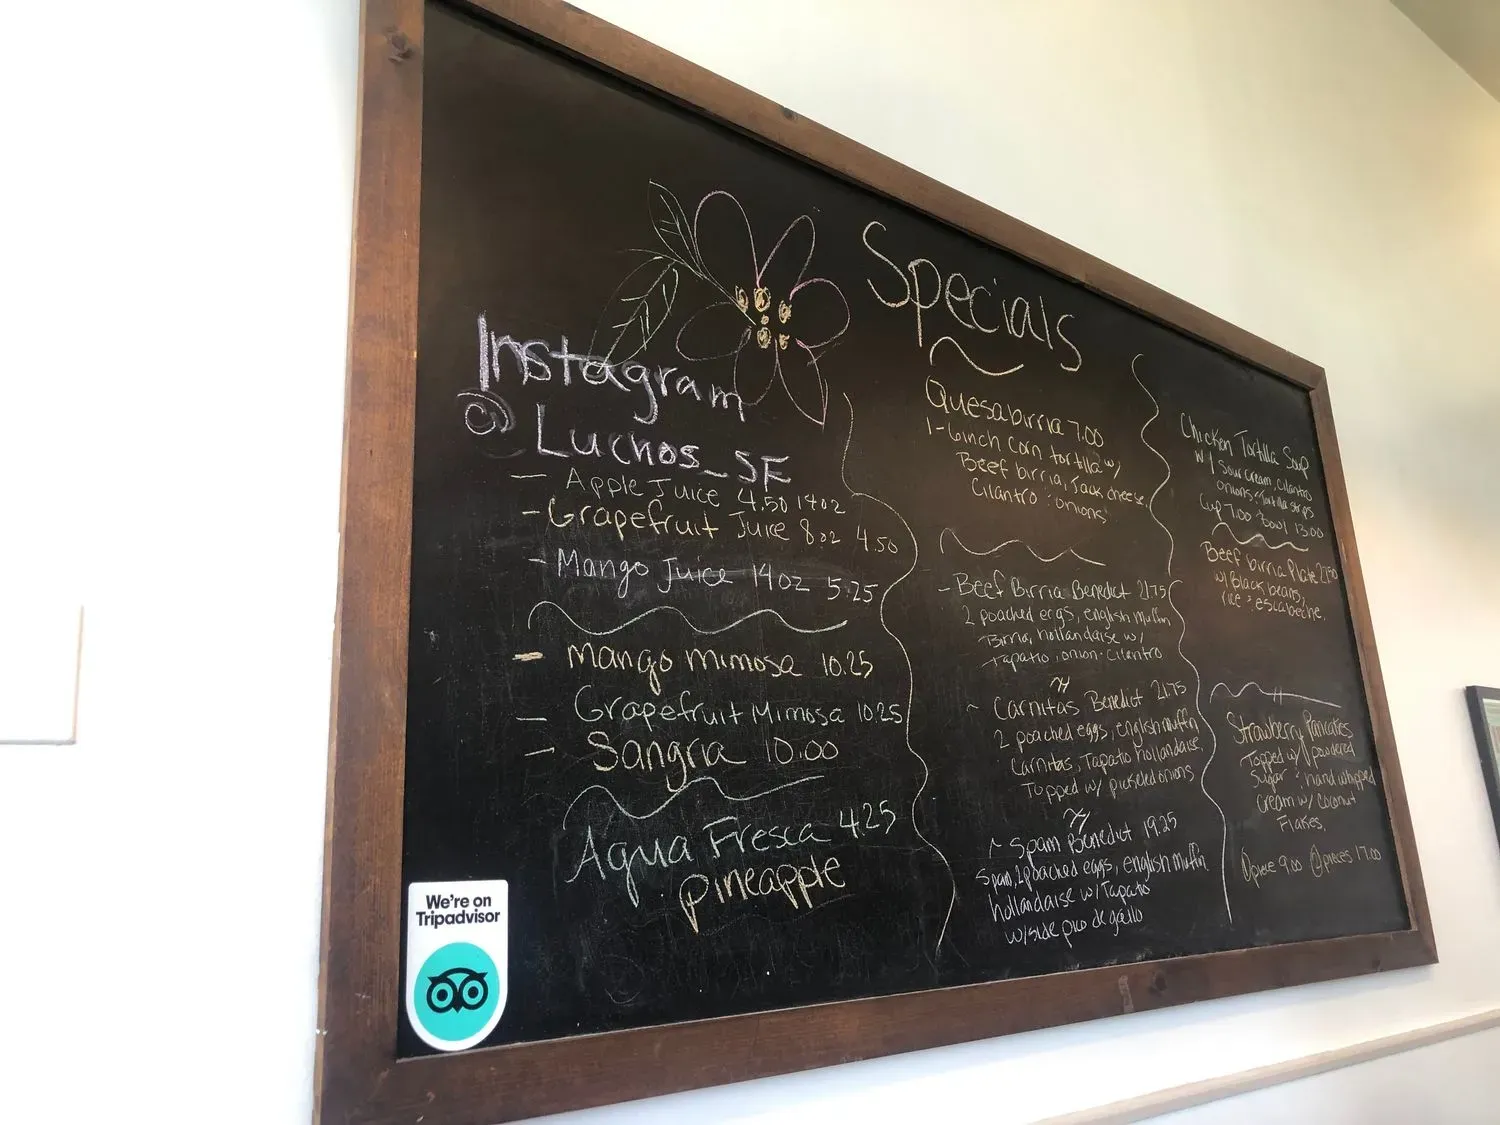 Specials
Instagram
@ Luchos_SF
- Apple Juice 4.50 14oz
- Grapefruit Juice 8oz 4.50
- Mango Juice 14oz 5.25
- Mango Mimosa 10.25
- Grapefruit Mimosa 10.25
- Sangria 10.00
Agua Fresca 4.25
pineapple
We're on
Tripadvisor
Quesabirria 7.00
1-6inch Corn tortilla w/
Beef birria, Jack cheese,
Cilantro : onions
- Beef Birria Benedict 21.75
2 poached eggs, english muffin
Birria, hollandaise w/
Tapatio, onion. Cilantro
~ Carnitas Benedict 21.75
2 poached eggs, english muffin
Carnitas, Tapatio hollandaise
Topped w/ pickled onions
~ Spam Benedict 19.25
Spam, 2 poached eggs, english muffin
hollandaise w/ Tapatio
w/side pico de gallo
Chicken Tortilla Soup
w/ Sour cream, cilantro
onions, tortilla strips
Cup 7.00 bowl 13.00
Beef birria Plate
w/ Black beans,
rice : escabeche.
Strawberry Pancakes
Topped w/ powdered
Sugar : hand whipped
Cream w/ Coconut
Flakes.
1 piece 9.00 2 pieces 17.00